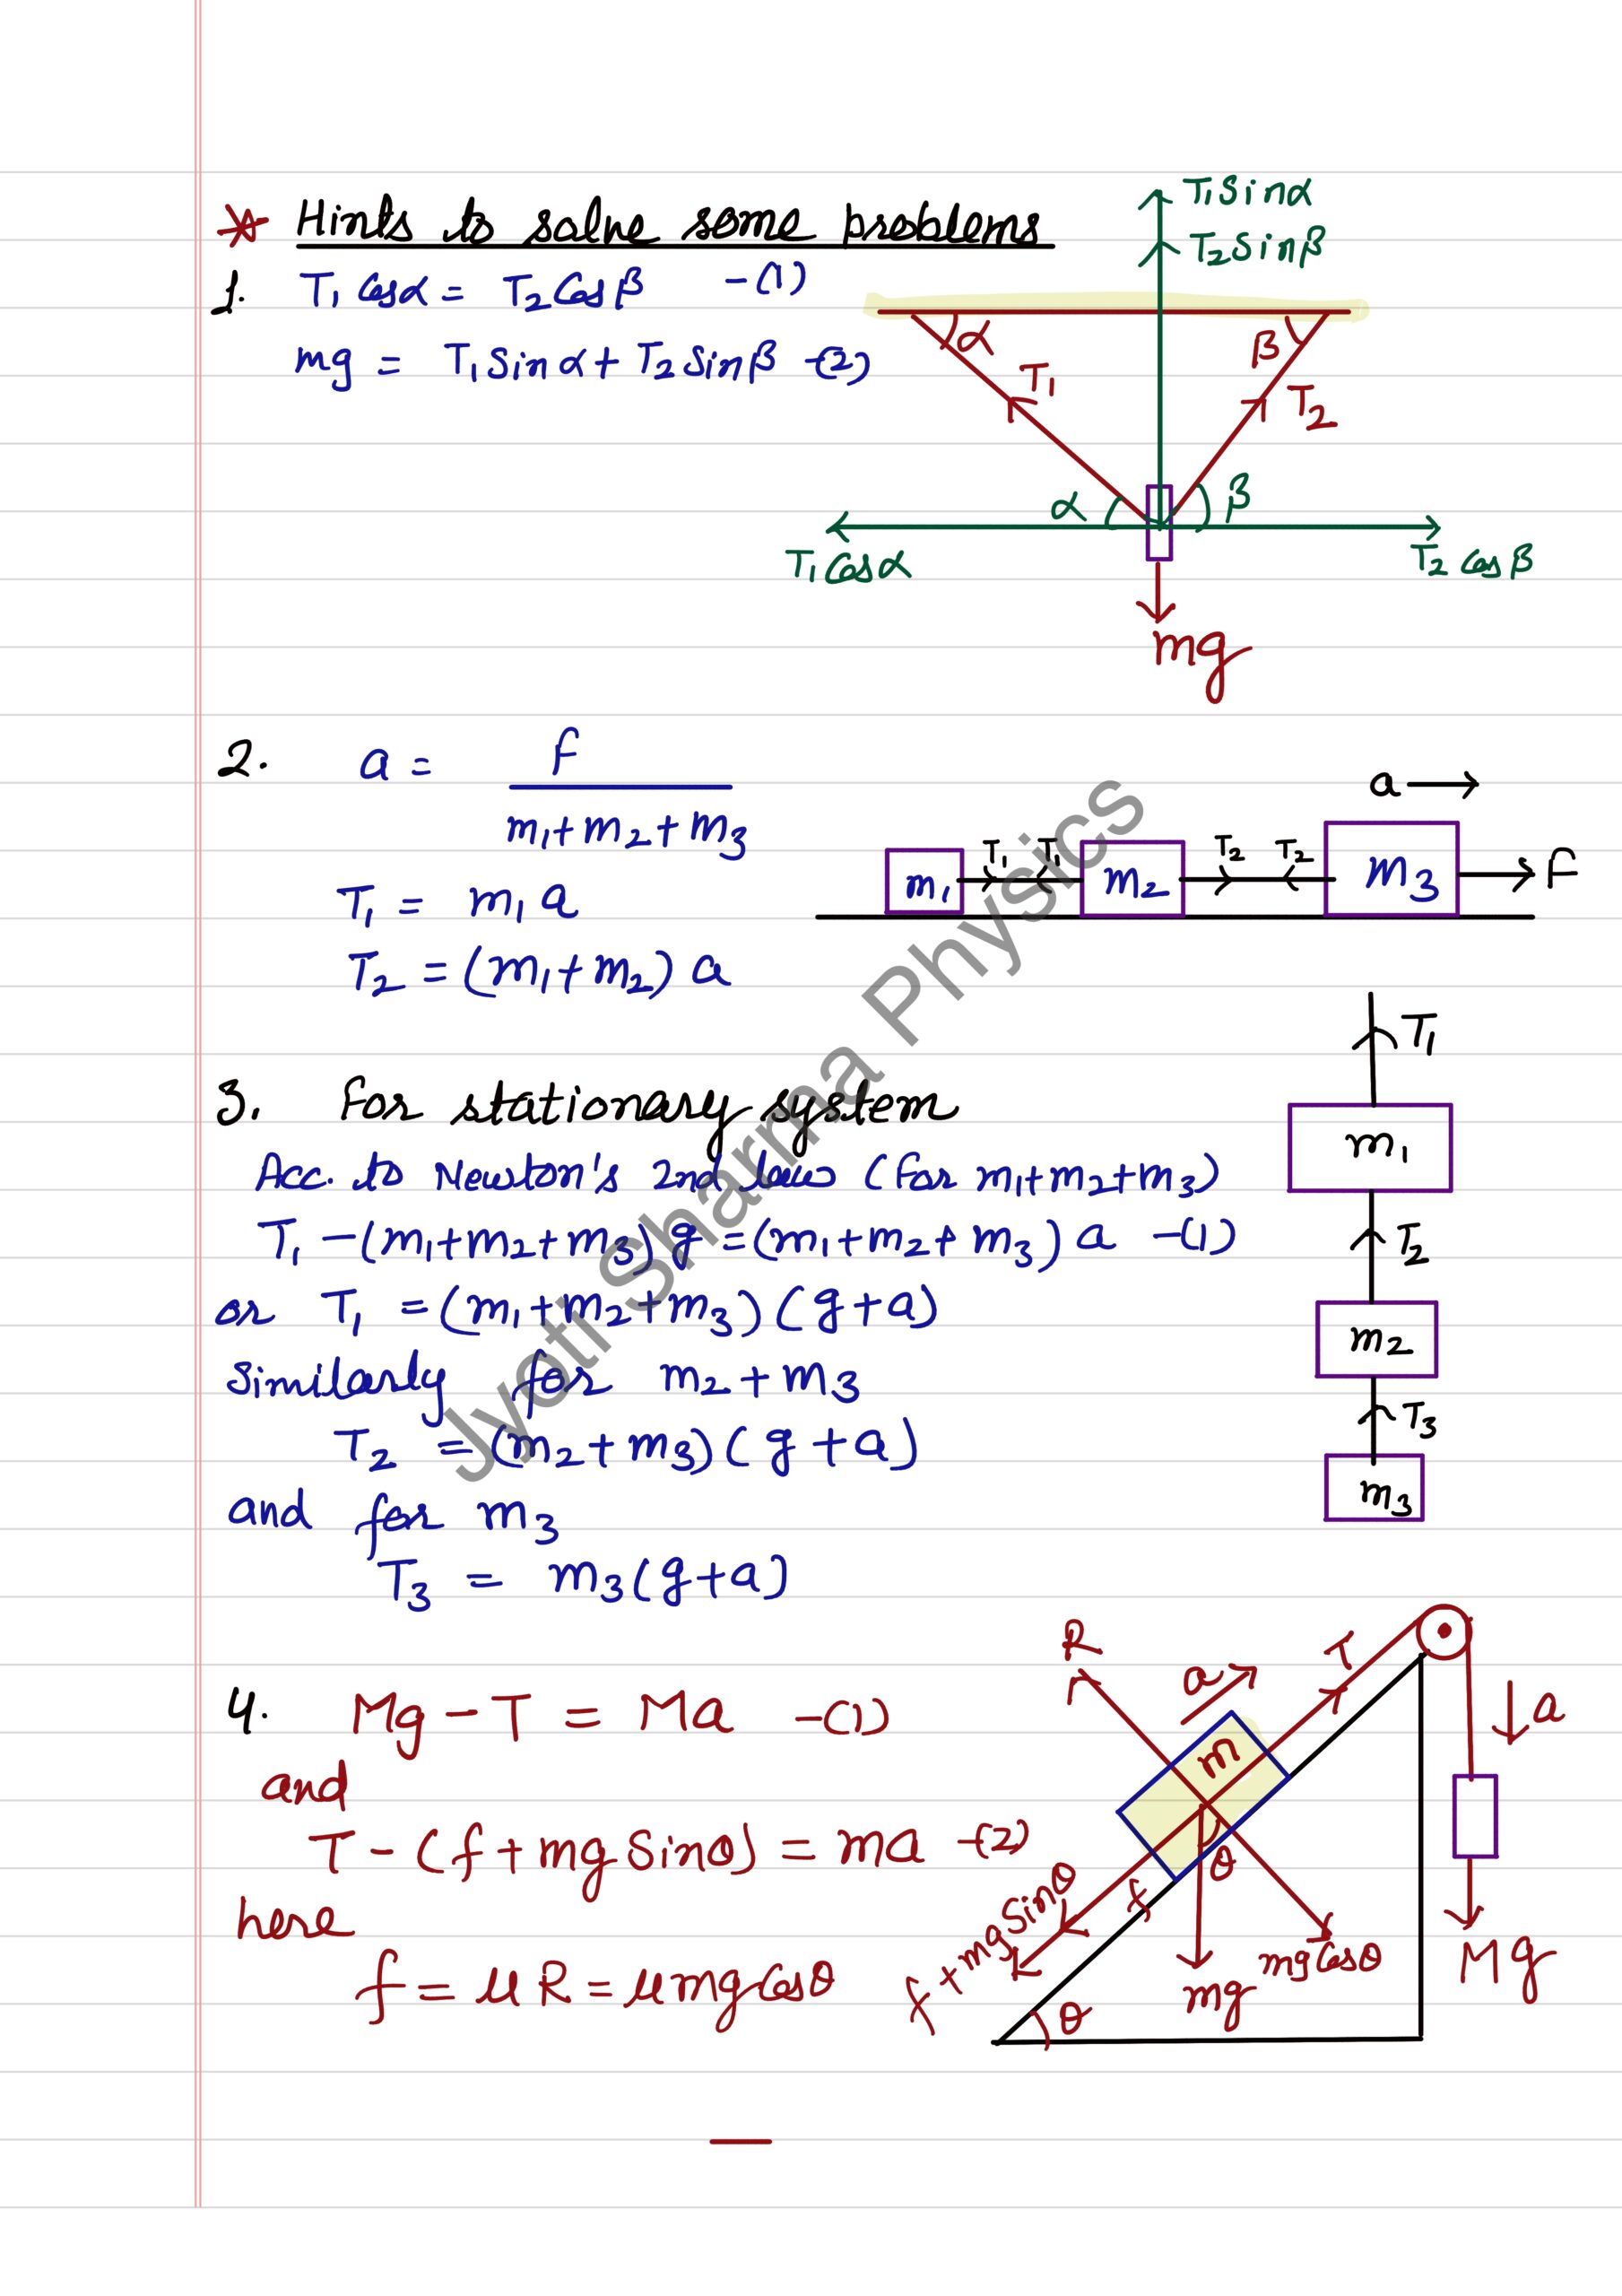 * Hints to solve some problems
1. T₁ Cosα = T₂ Cosβ -(1)
mg = T₁ Sinα + T₂ Sinβ -(2)
T₁ Sinα
T₂ Sinβ
α
β
T₁
T₂
α
β
T₁ Cosα
T₂ Cosβ
mg
2. a = F
m₁+m₂+m₃
T₁ = m₁ a
T₂ = (m₁+m₂) a
a →
m₁ T₁ T₁ m₂ T₂ T₂ m₃ F
3. For stationary system
Acc. to Newton's 2nd law (for m₁+m₂+m₃)
T₁ -(m₁+m₂+m₃) g =(m₁+m₂+m₃) a -(1)
or T₁ =(m₁+m₂+m₃)(g+a)
Similarly for m₂+m₃
T₂ =(m₂+m₃)(g+a)
and for m₃
T₃ = m₃(g+a)
T₁
m₁
T₂
m₂
T₃
m₃
4. Mg - T = Ma -(1)
and
T - (f+mg Sinθ) = ma -(2)
here
f = μR = μmgCosθ
R
a
T
a
m
θ
f
f+mgSinθ
mg
mgCosθ
Mg
θ
Jyoti Sharma Physics